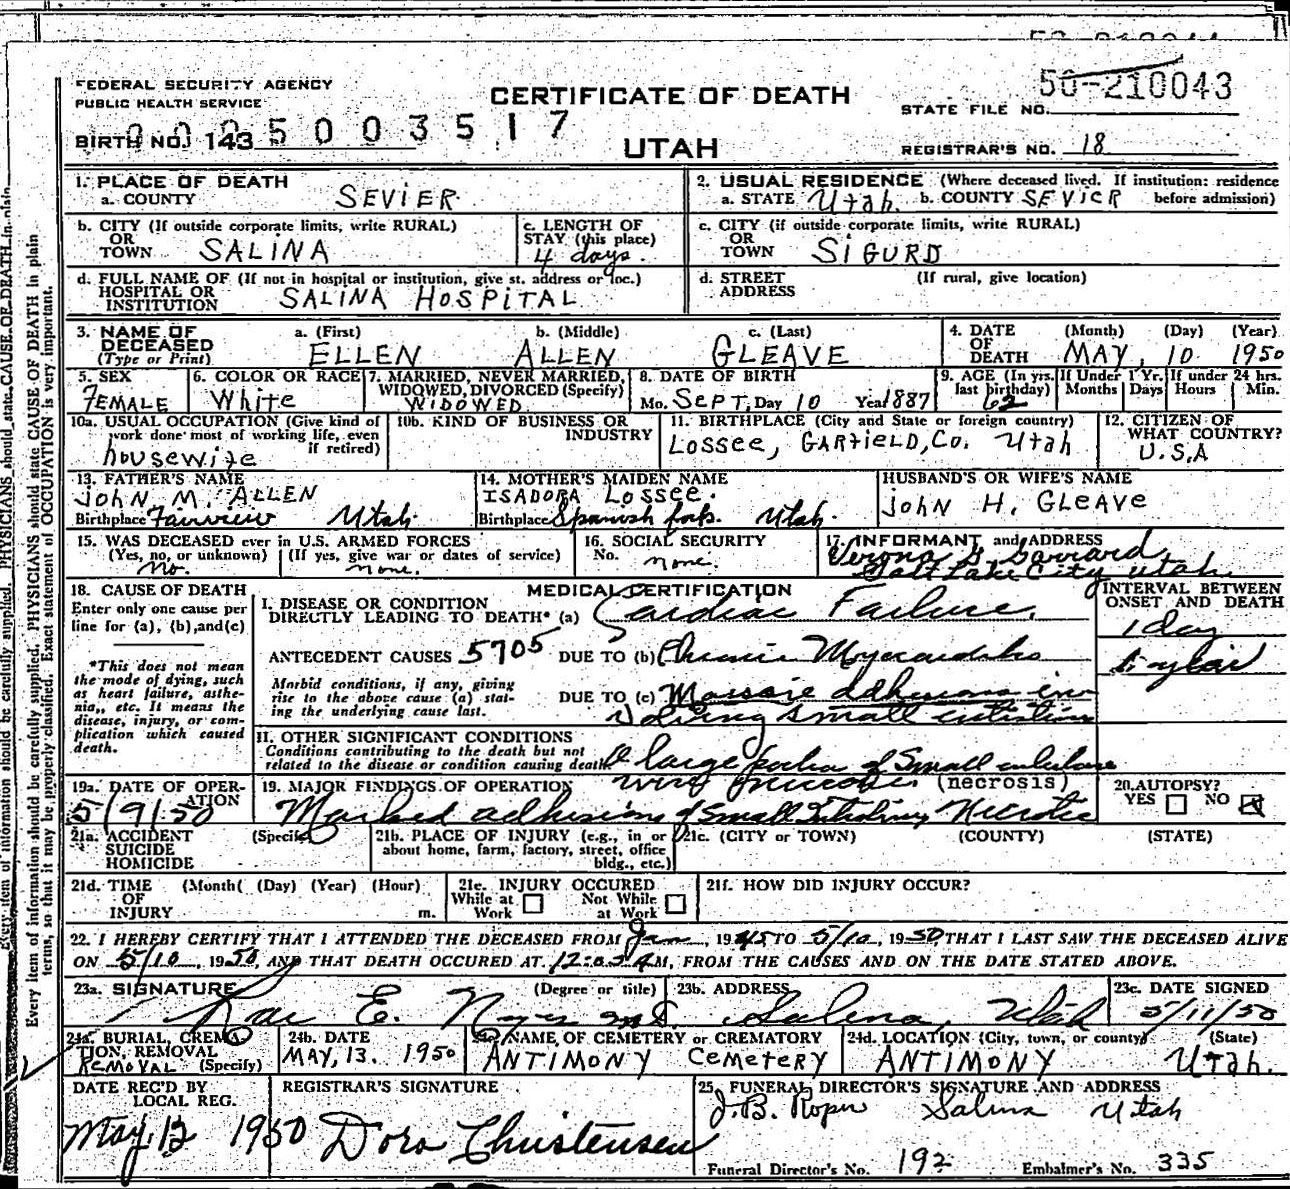 50-210043
FEDERAL SECURITY AGENCY
PUBLIC HEALTH SERVICE
CERTIFICATE OF DEATH
STATE FILE NO.
BIRTH NO. 143
UTAH
REGISTRAR'S NO. 18
1. PLACE OF DEATH
a. COUNTY SEVIER
2. USUAL RESIDENCE (Where deceased lived. If institution: residence before admission)
a. STATE Utah. b. COUNTY SEVIER
b. CITY (If outside corporate limits, write RURAL)
OR
TOWN SALINA
c. LENGTH OF STAY (this place)
4 days.
c. CITY (if outside corporate limits, write RURAL)
OR
TOWN SIGURD
d. FULL NAME OF (If not in hospital or institution, give st. address or loc.)
HOSPITAL OR
INSTITUTION SALINA HOSPITAL
d. STREET ADDRESS (If rural, give location)
3. NAME OF DECEASED (Type or Print)
a. (First) b. (Middle) c. (Last)
ELLEN ALLEN GLEAVE
4. DATE OF DEATH (Month) (Day) (Year)
MAY, 10 1950
5. SEX
FEMALE
6. COLOR OR RACE
White
7. MARRIED, NEVER MARRIED, WIDOWED, DIVORCED (Specify)
WIDOWED
8. DATE OF BIRTH
Mo. SEPT. Day 10 Year 1887
9. AGE (In yrs. last birthday) If Under 1 Yr. If under 24 hrs.
Months Days Hours Min.
62
10a. USUAL OCCUPATION (Give kind of work done most of working life, even if retired)
housewife
10b. KIND OF BUSINESS OR INDUSTRY
11. BIRTHPLACE (City and State or foreign country)
LOSSEE, GARFIELD, Co. Utah
12. CITIZEN OF WHAT COUNTRY?
U.S.A
13. FATHER'S NAME
JOHN M. ALLEN
Birthplace Fairview Utah
14. MOTHER'S MAIDEN NAME
ISADORA LOSSEE.
Birthplace Spanish fork. Utah.
HUSBAND'S OR WIFE'S NAME
JOHN H. GLEAVE
15. WAS DECEASED ever in U.S. ARMED FORCES
(Yes, no, or unknown) (If yes, give war or dates of service)
No. none.
16. SOCIAL SECURITY
No. none.
17. INFORMANT and ADDRESS
Verona G Garrard
Salt Lake City Utah
18. CAUSE OF DEATH
Enter only one cause per line for (a), (b), and (c)
*This does not mean the mode of dying, such as heart failure, asthenia,, etc. It means the disease, injury, or complication which caused death.
MEDICAL CERTIFICATION
INTERVAL BETWEEN ONSET AND DEATH
I. DISEASE OR CONDITION DIRECTLY LEADING TO DEATH* (a) Cardiac Failure. 1 day
ANTECEDENT CAUSES 5705 DUE TO (b) Chronic Myocarditis
Morbid conditions, if any, giving rise to the above cause (a) stating the underlying cause last.
DUE TO (c) Massive adhesions involving small intestine
II. OTHER SIGNIFICANT CONDITIONS
Conditions contributing to the death but not related to the disease or condition causing death
large portion of Small intestine
were (necrosis)
19a. DATE OF OPERATION
5/9/50
19. MAJOR FINDINGS OF OPERATION
Marked adhesions of Small Intestine Necrotic
20. AUTOPSY?
YES NO X
21a. ACCIDENT SUICIDE HOMICIDE (Specify)
21b. PLACE OF INJURY (e.g., in or about home, farm, factory, street, office bldg., etc.)
21c. (CITY or TOWN) (COUNTY) (STATE)
21d. TIME OF INJURY (Month) (Day) (Year) (Hour) m.
21e. INJURY OCCURED
While at Work Not While at Work
21f. HOW DID INJURY OCCUR?
22. I HEREBY CERTIFY THAT I ATTENDED THE DECEASED FROM Jan, 1945 TO 5/10, 1950 THAT I LAST SAW THE DECEASED ALIVE
ON 5/10, 1950, AND THAT DEATH OCCURED AT 12:02 AM, FROM THE CAUSES AND ON THE DATE STATED ABOVE.
23a. SIGNATURE (Degree or title)
Rae E. Noyes M.D.
23b. ADDRESS
Salina, Utah
23c. DATE SIGNED
5/11/50
24a. BURIAL, CREMATION, REMOVAL (Specify)
REMOVAL
24b. DATE
MAY, 13. 1950
NAME OF CEMETERY or CREMATORY
ANTIMONY CEMETERY
24d. LOCATION (City, town, or county) (State)
ANTIMONY Utah.
DATE REC'D BY LOCAL REG.
May 12 1950
REGISTRAR'S SIGNATURE
Dora Christensen
25. FUNERAL DIRECTOR'S SIGNATURE AND ADDRESS
J.B. Roper Salina Utah
Funeral Director's No. 192 Embalmer's No. 335
Every item of information should be carefully supplied. PHYSICIANS should state CAUSE OF DEATH in plain
terms, so that it may be properly classified. Exact statement of OCCUPATION is very important.